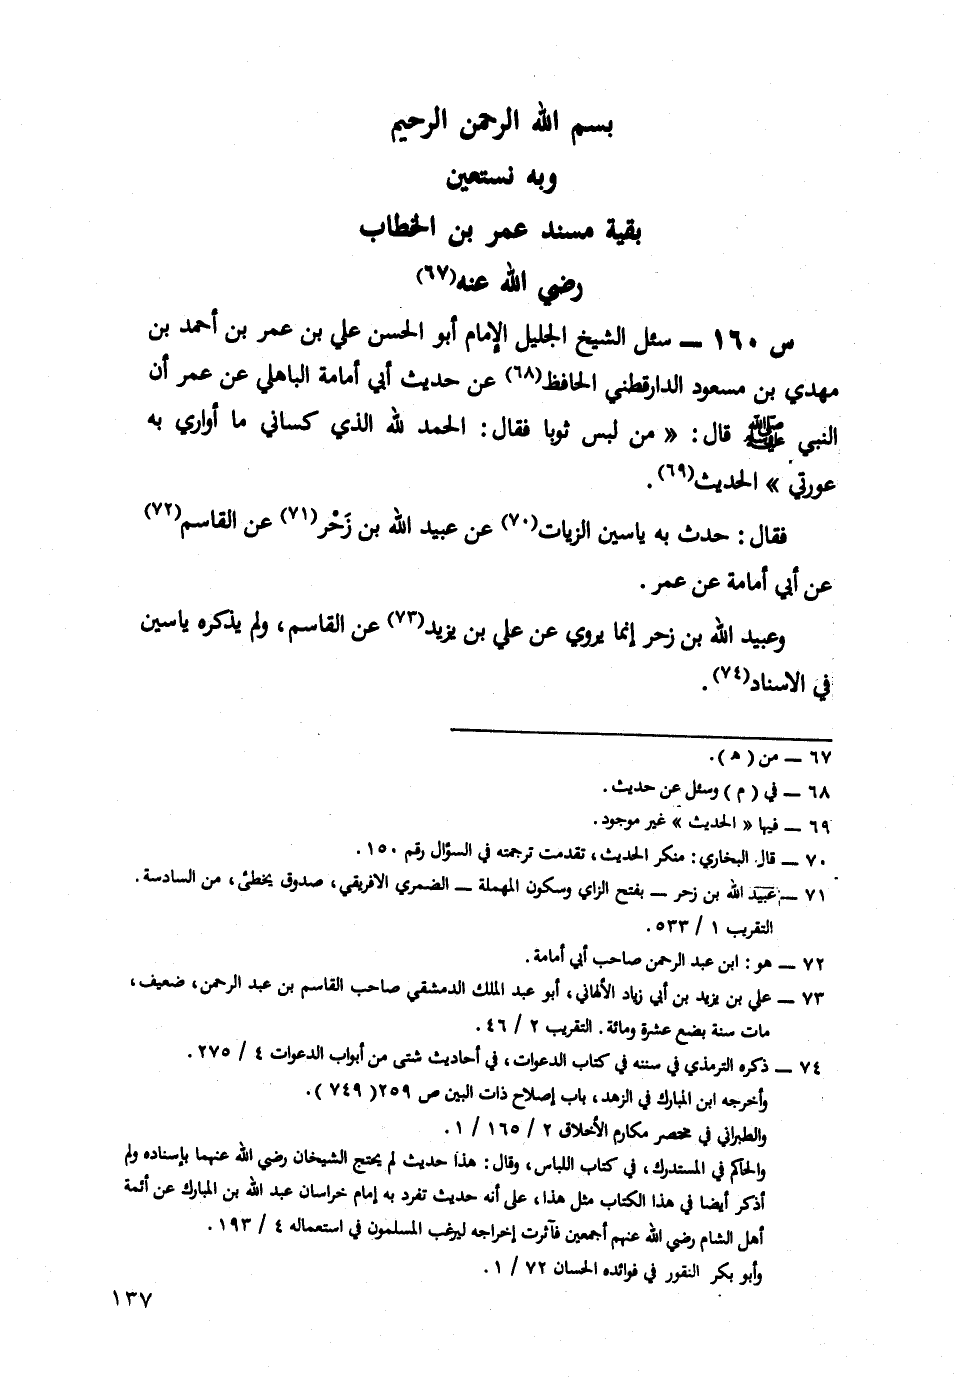 بسم الله الرحمن الرحيم
وبه نستعين
بقية مسند عمر بن الخطاب
رضي الله عنه(٦٧)
س ١٦٠ ــ سئل الشيخ الجليل الإمام أبو الحسن علي بن عمر بن أحمد بن
مهدي بن مسعود الدارقطني الحافظ(٦٨) عن حديث أبي أمامة الباهلي عن عمر أن
النبي ﷺ قال: « من لبس ثوبا فقال: الحمد لله الذي كساني ما أواري به
عورتي » الحديث(٦٩).
فقال: حدث به ياسين الزيات(٧٠) عن عبيد الله بن زَحْر(٧١) عن القاسم(٧٢)
عن أبي أمامة عن عمر.
وعبيد الله بن زحر إنما يروي عن علي بن يزيد(٧٣) عن القاسم، ولم يذكره ياسين
في الاسناد(٧٤).
٦٧ ــ من ( هـ ).
٦٨ ــ في ( م ) وسئل عن حديث.
٦٩ ــ فيها « الحديث » غير موجود.
٧٠ ــ قال البخاري: منكر الحديث، تقدمت ترجمته في السؤال رقم ١٥٠.
٧١ ــ عبيد الله بن زحر ــ بفتح الزاي وسكون المهملة ــ الضمري الافريقي، صدوق يخطئ، من السادسة.
التقريب ١ / ٥٣٣.
٧٢ ــ هو: ابن عبد الرحمن صاحب أبي أمامة.
٧٣ ــ علي بن يزيد بن أبي زياد الألهاني، أبو عبد الملك الدمشقي صاحب القاسم بن عبد الرحمن، ضعيف،
مات سنة بضع عشرة ومائة. التقريب ٢ / ٤٦.
٧٤ ــ ذكره الترمذي في سننه في كتاب الدعوات، في أحاديث شتى من أبواب الدعوات ٤ / ٢٧٥.
وأخرجه ابن المبارك في الزهد، باب إصلاح ذات البين ص ٢٥٩( ٧٤٩ ).
والطبراني في مختصر مكارم الأخلاق ٢ / ١٦٥ / ١.
والحاكم في المستدرك، في كتاب اللباس، وقال: هذا حديث لم يحتج الشيخان رضي الله عنهما بإسناده ولم
أذكر أيضا في هذا الكتاب مثل هذا، على أنه حديث تفرد به إمام خراسان عبد الله بن المبارك عن أئمة
أهل الشام رضي الله عنهم أجمعين فآثرت إخراجه ليرغب المسلمون في استعماله ٤ / ١٩٣.
وأبو بكر النقور في فوائده الحسان ٧٢ / ١.
١٣٧